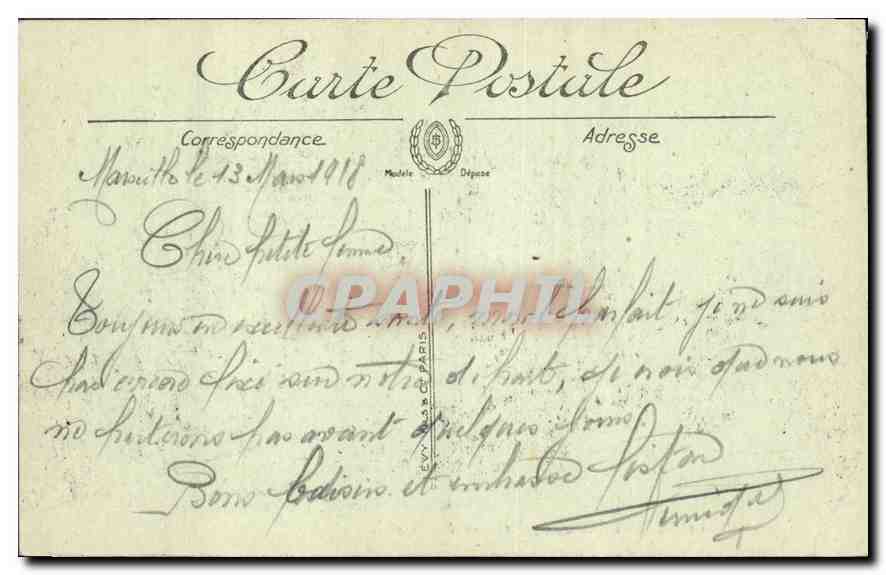 Carte Postale
Correspondance
Adresse
Modèle Déposé
Marseille le 13 Mars 1918
Chère petite femme,
CPAPHIL
Toujours en excellente santé, moral parfait, je ne suis
pas encore fixé sur notre départ, je crois que nous
ne partirons pas avant quelques jours
Bons baisers et embrasse fiston
LÉVY FILS & Cie PARIS